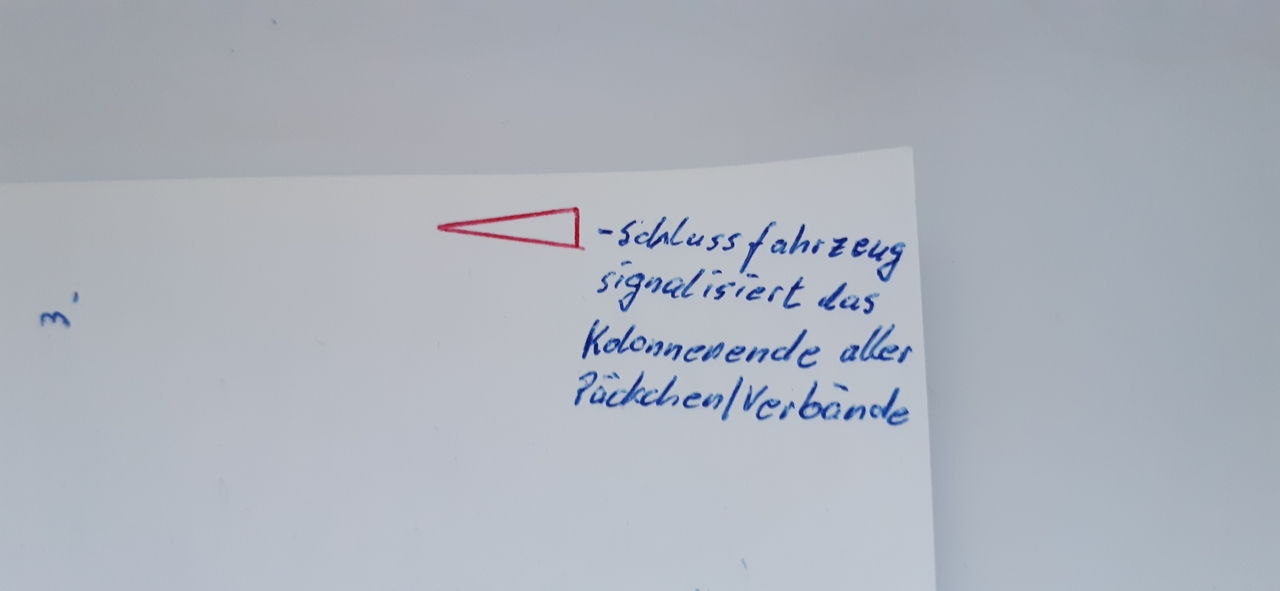 3.
-Schlussfahrzeug
signalisiert das
Kolonnenende aller
Päckchen/Verbände